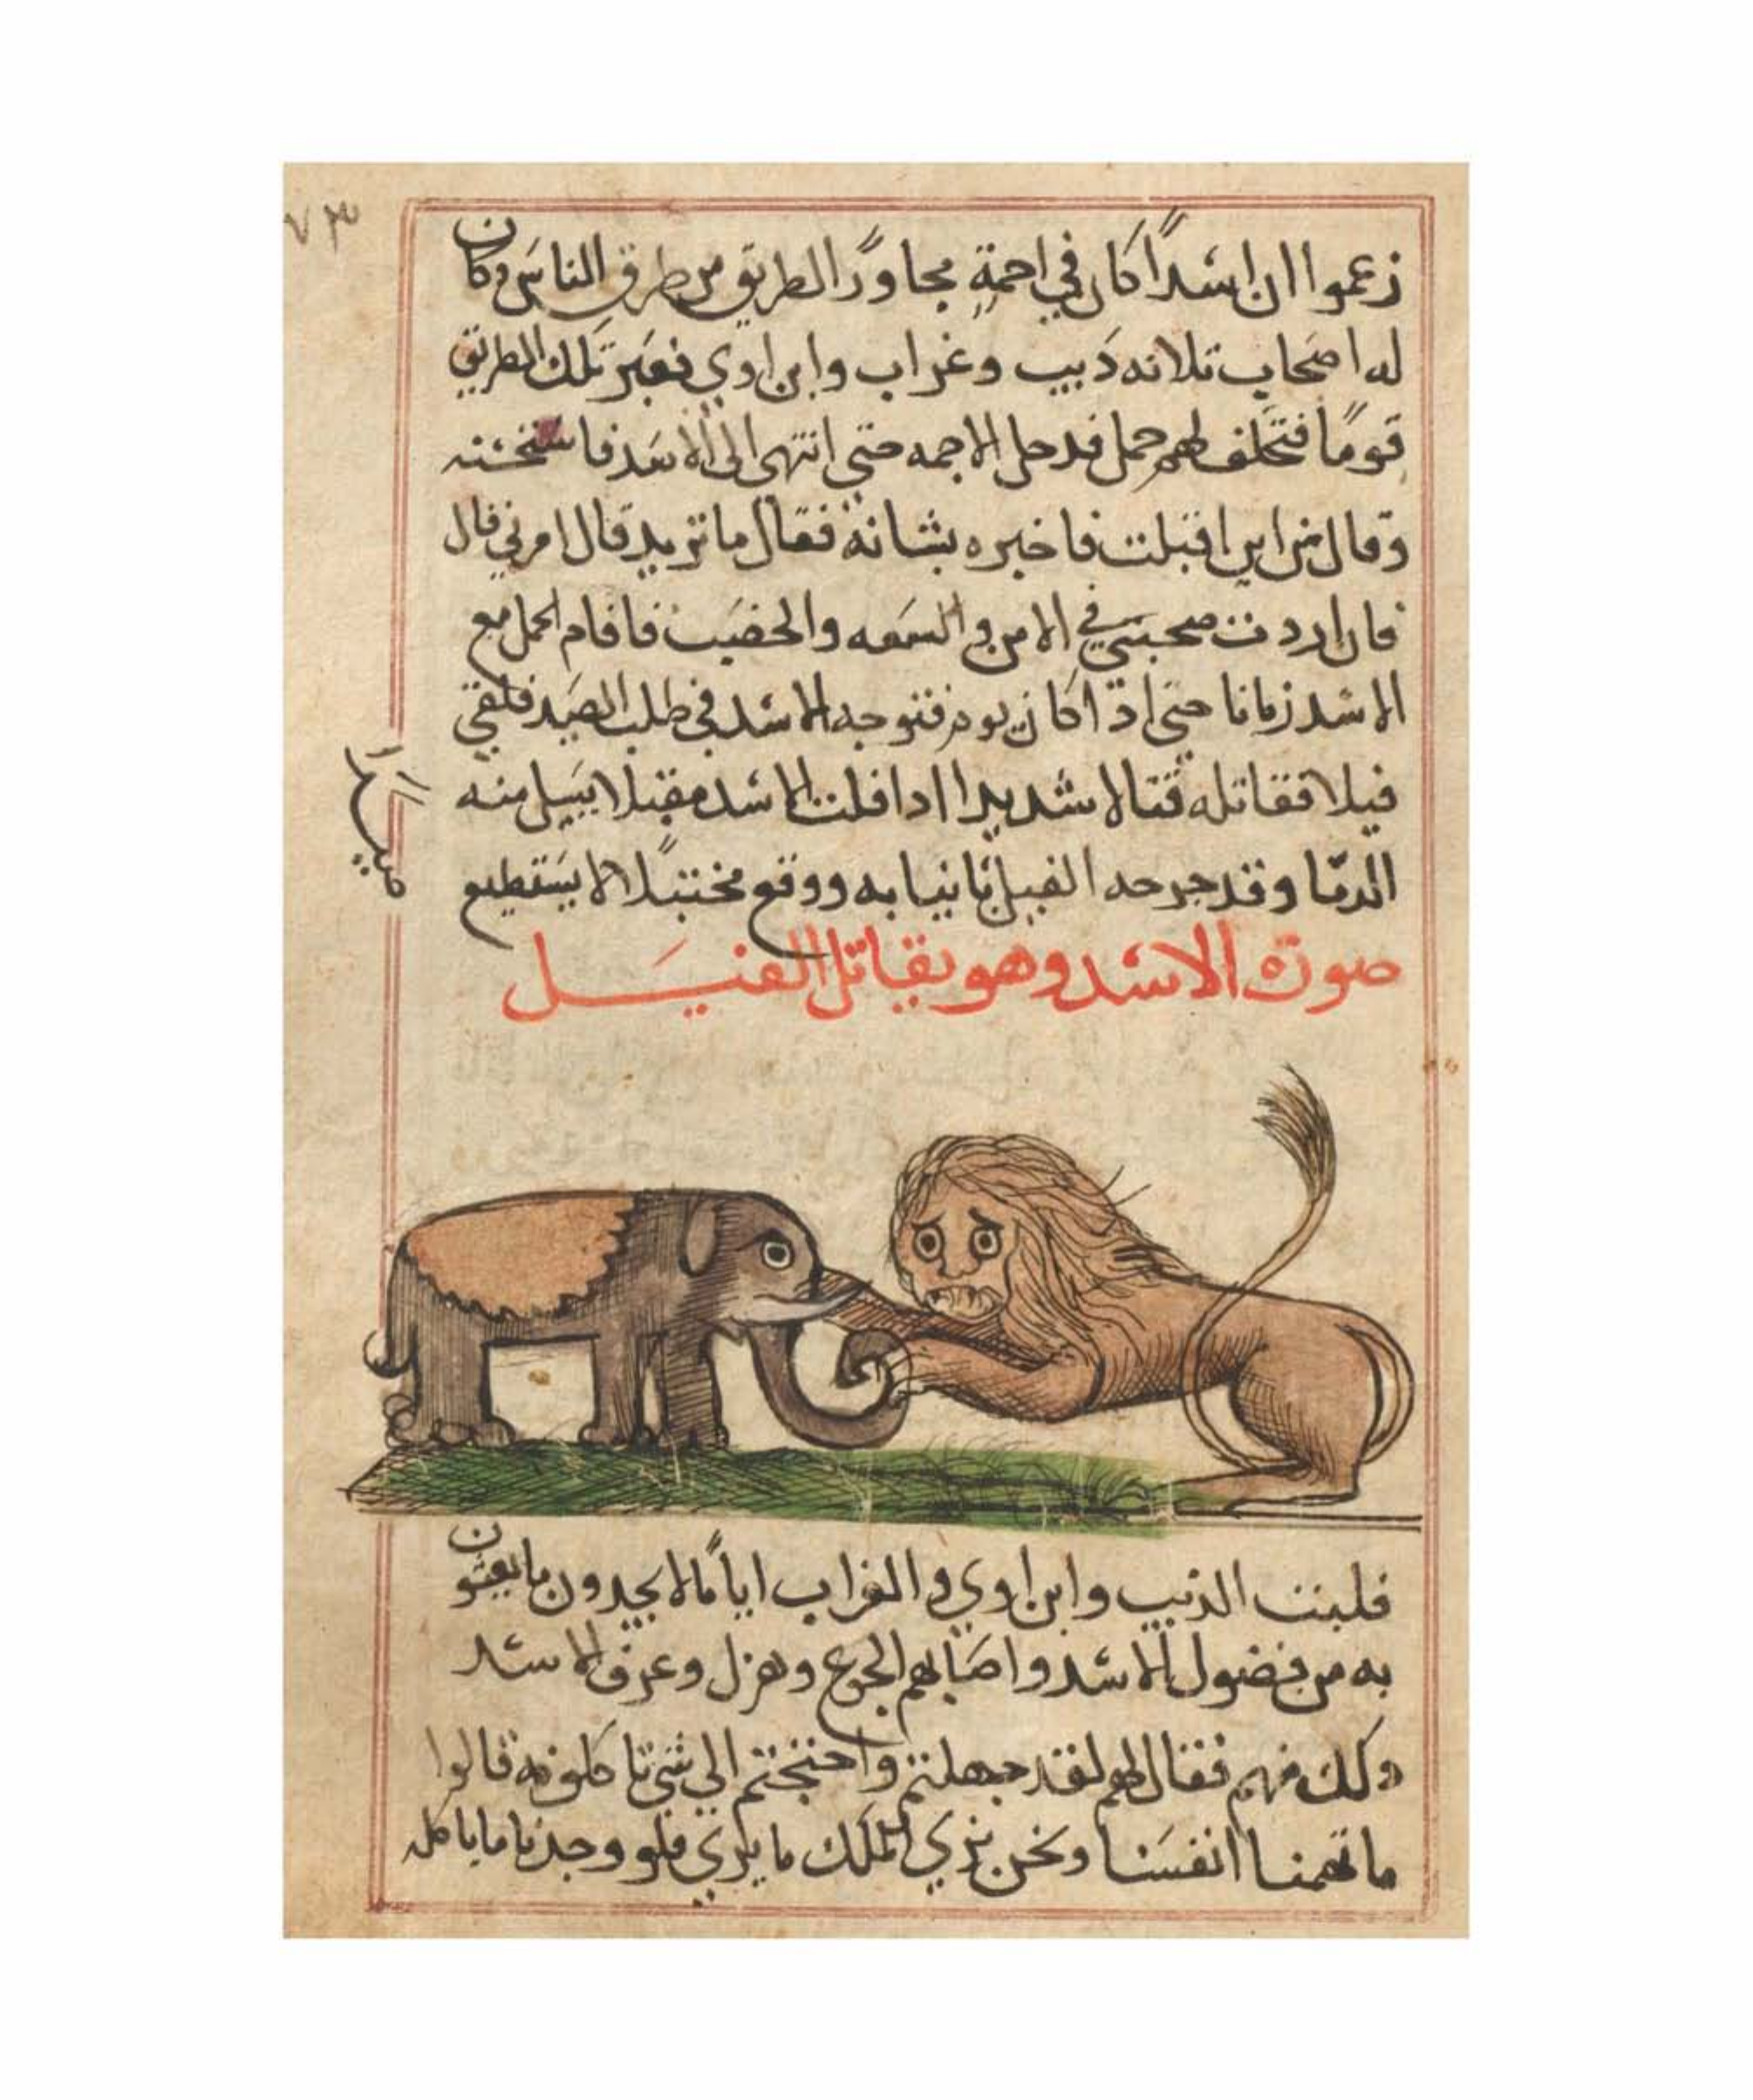 ٧٣
زعموا ان اسدًا كان في اجمة مجاورًا لطريق من طرق الناس وكان
له اصحاب تلاته ديب وغراب وابن اوي فعبر تلك الطريق
قومًا فتخلف لهم جمل فدخل الاجمه حتي انتهى الى الاسد
وقال من اين اقبلت فاخبره بشانه فقال ما تريد قال امرني قال
فان اردت صحبتي في الامن والسعه والخصب فاقام الجمل مع
الاسد زمانا حتي ادا كان يوم فتوجه الاسد في طلب الصيد فلقي
فيلا فقاتله قتالا شديدا ادا فلت الاسد مقبلا يسيل منه
الدما وقد جرحه الفيل بانيابه ووقع لا يستطيع
صورة الاسد وهو يقاتل الفيل
فلبثت الذيب وابن اوي والغراب ايامًا لا يجدون ما يعيشون
به من فضول الاسد واصابهم الجوع وهزل وعرف الاسد
دلك منهم فقال لهم لقد جهلتم واحتجتم الي شي تاكلونه قالوا
ما تهمنا انفسنا ونحن نري الملك ما يري فلو وجدنا ما ياكله